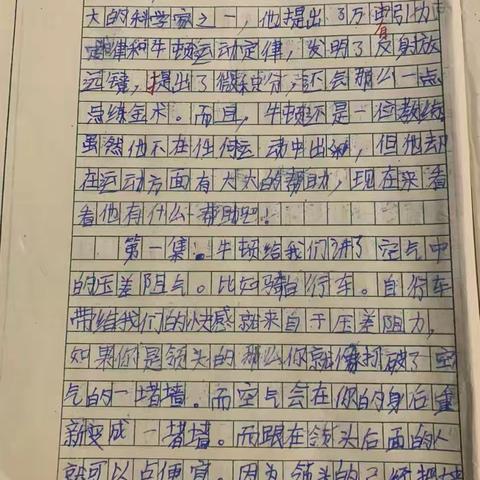 大的科学家之一,他提出了万有引力
定律和牛顿运动定律,发明了反射放
远镜,提出了微积分,还会那么一点
点练金术。而且,牛顿还是一位教练
虽然他不在任何运动中出现,但他却
在运动方面有大大的帮助,现在来看
看他有什么帮助吧!
第一集:牛顿给我们讲了空气中
的压差阻气。比如骑自行车。自行车
带给我们的快感就来自于压差阻力,
如果你是领头的那么你就像打破了空
气的一堵墙。而空气会在你的身后重
新变成一堵墙。而跟在领头后面的人
就可以占便宜。因为领头的已经把墙